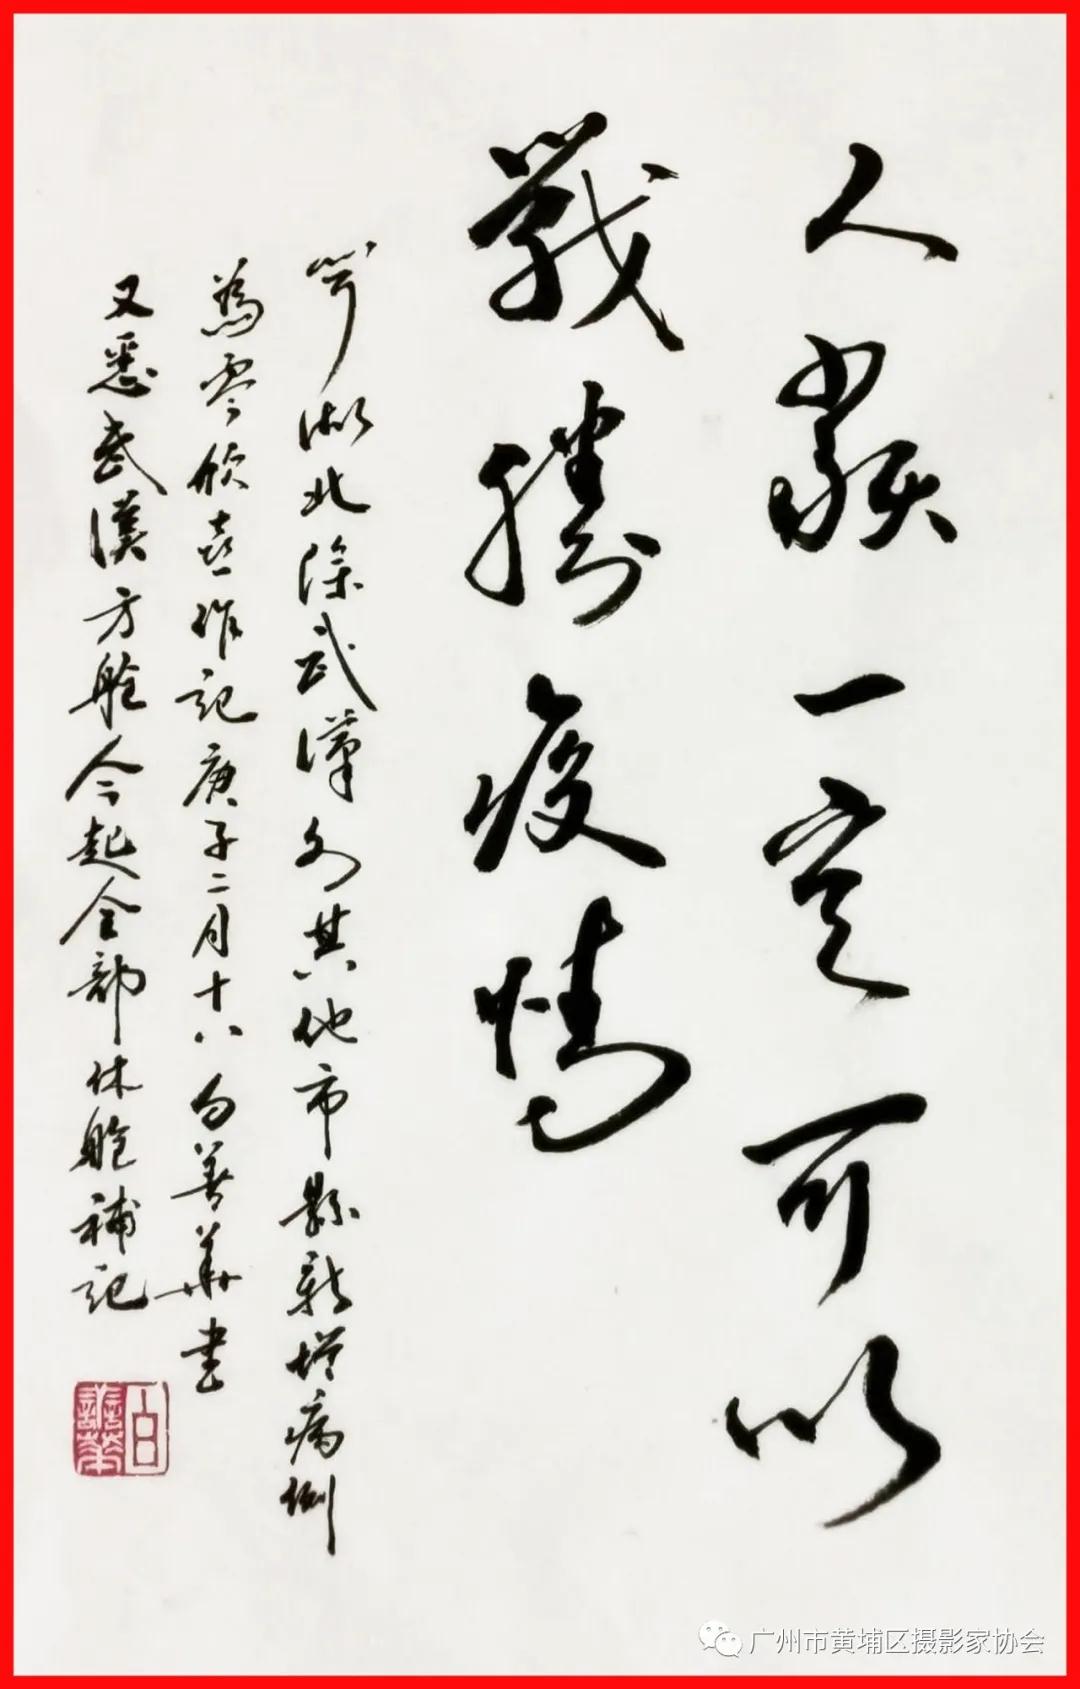 人類一定可以
戰勝疫情
湖北除武漢外其他市縣新增病例
為零欣喜作記庚子二月十八白善華書
又悉武漢方艙今起全部休艙補記
白善華
广州市黄埔区摄影家协会